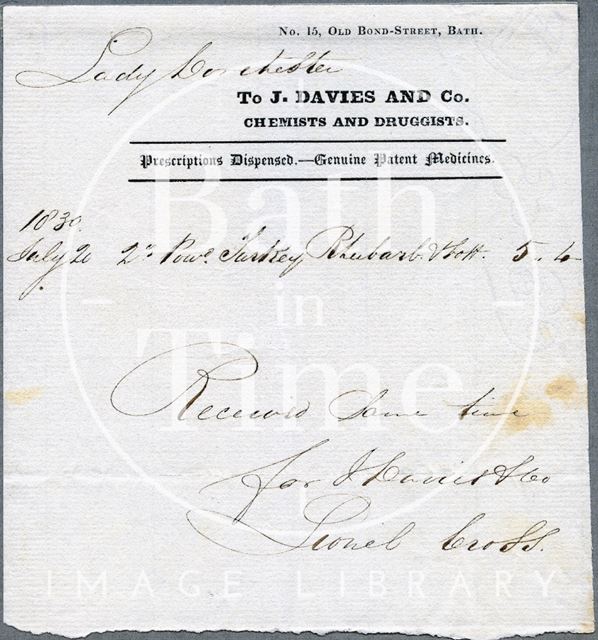 No. 15, Old Bond-Street, Bath.
Lady Dorchester
To J. DAVIES AND Co.
CHEMISTS AND DRUGGISTS.
Prescriptions Dispensed.—Genuine Patent Medicines.
1830
July 20 2 Powd Turkey Rhubarb & Bott. 5.4
Received same time
for J Davies & Co
Lionel Cross.
Bath
in
Time
IMAGE LIBRARY